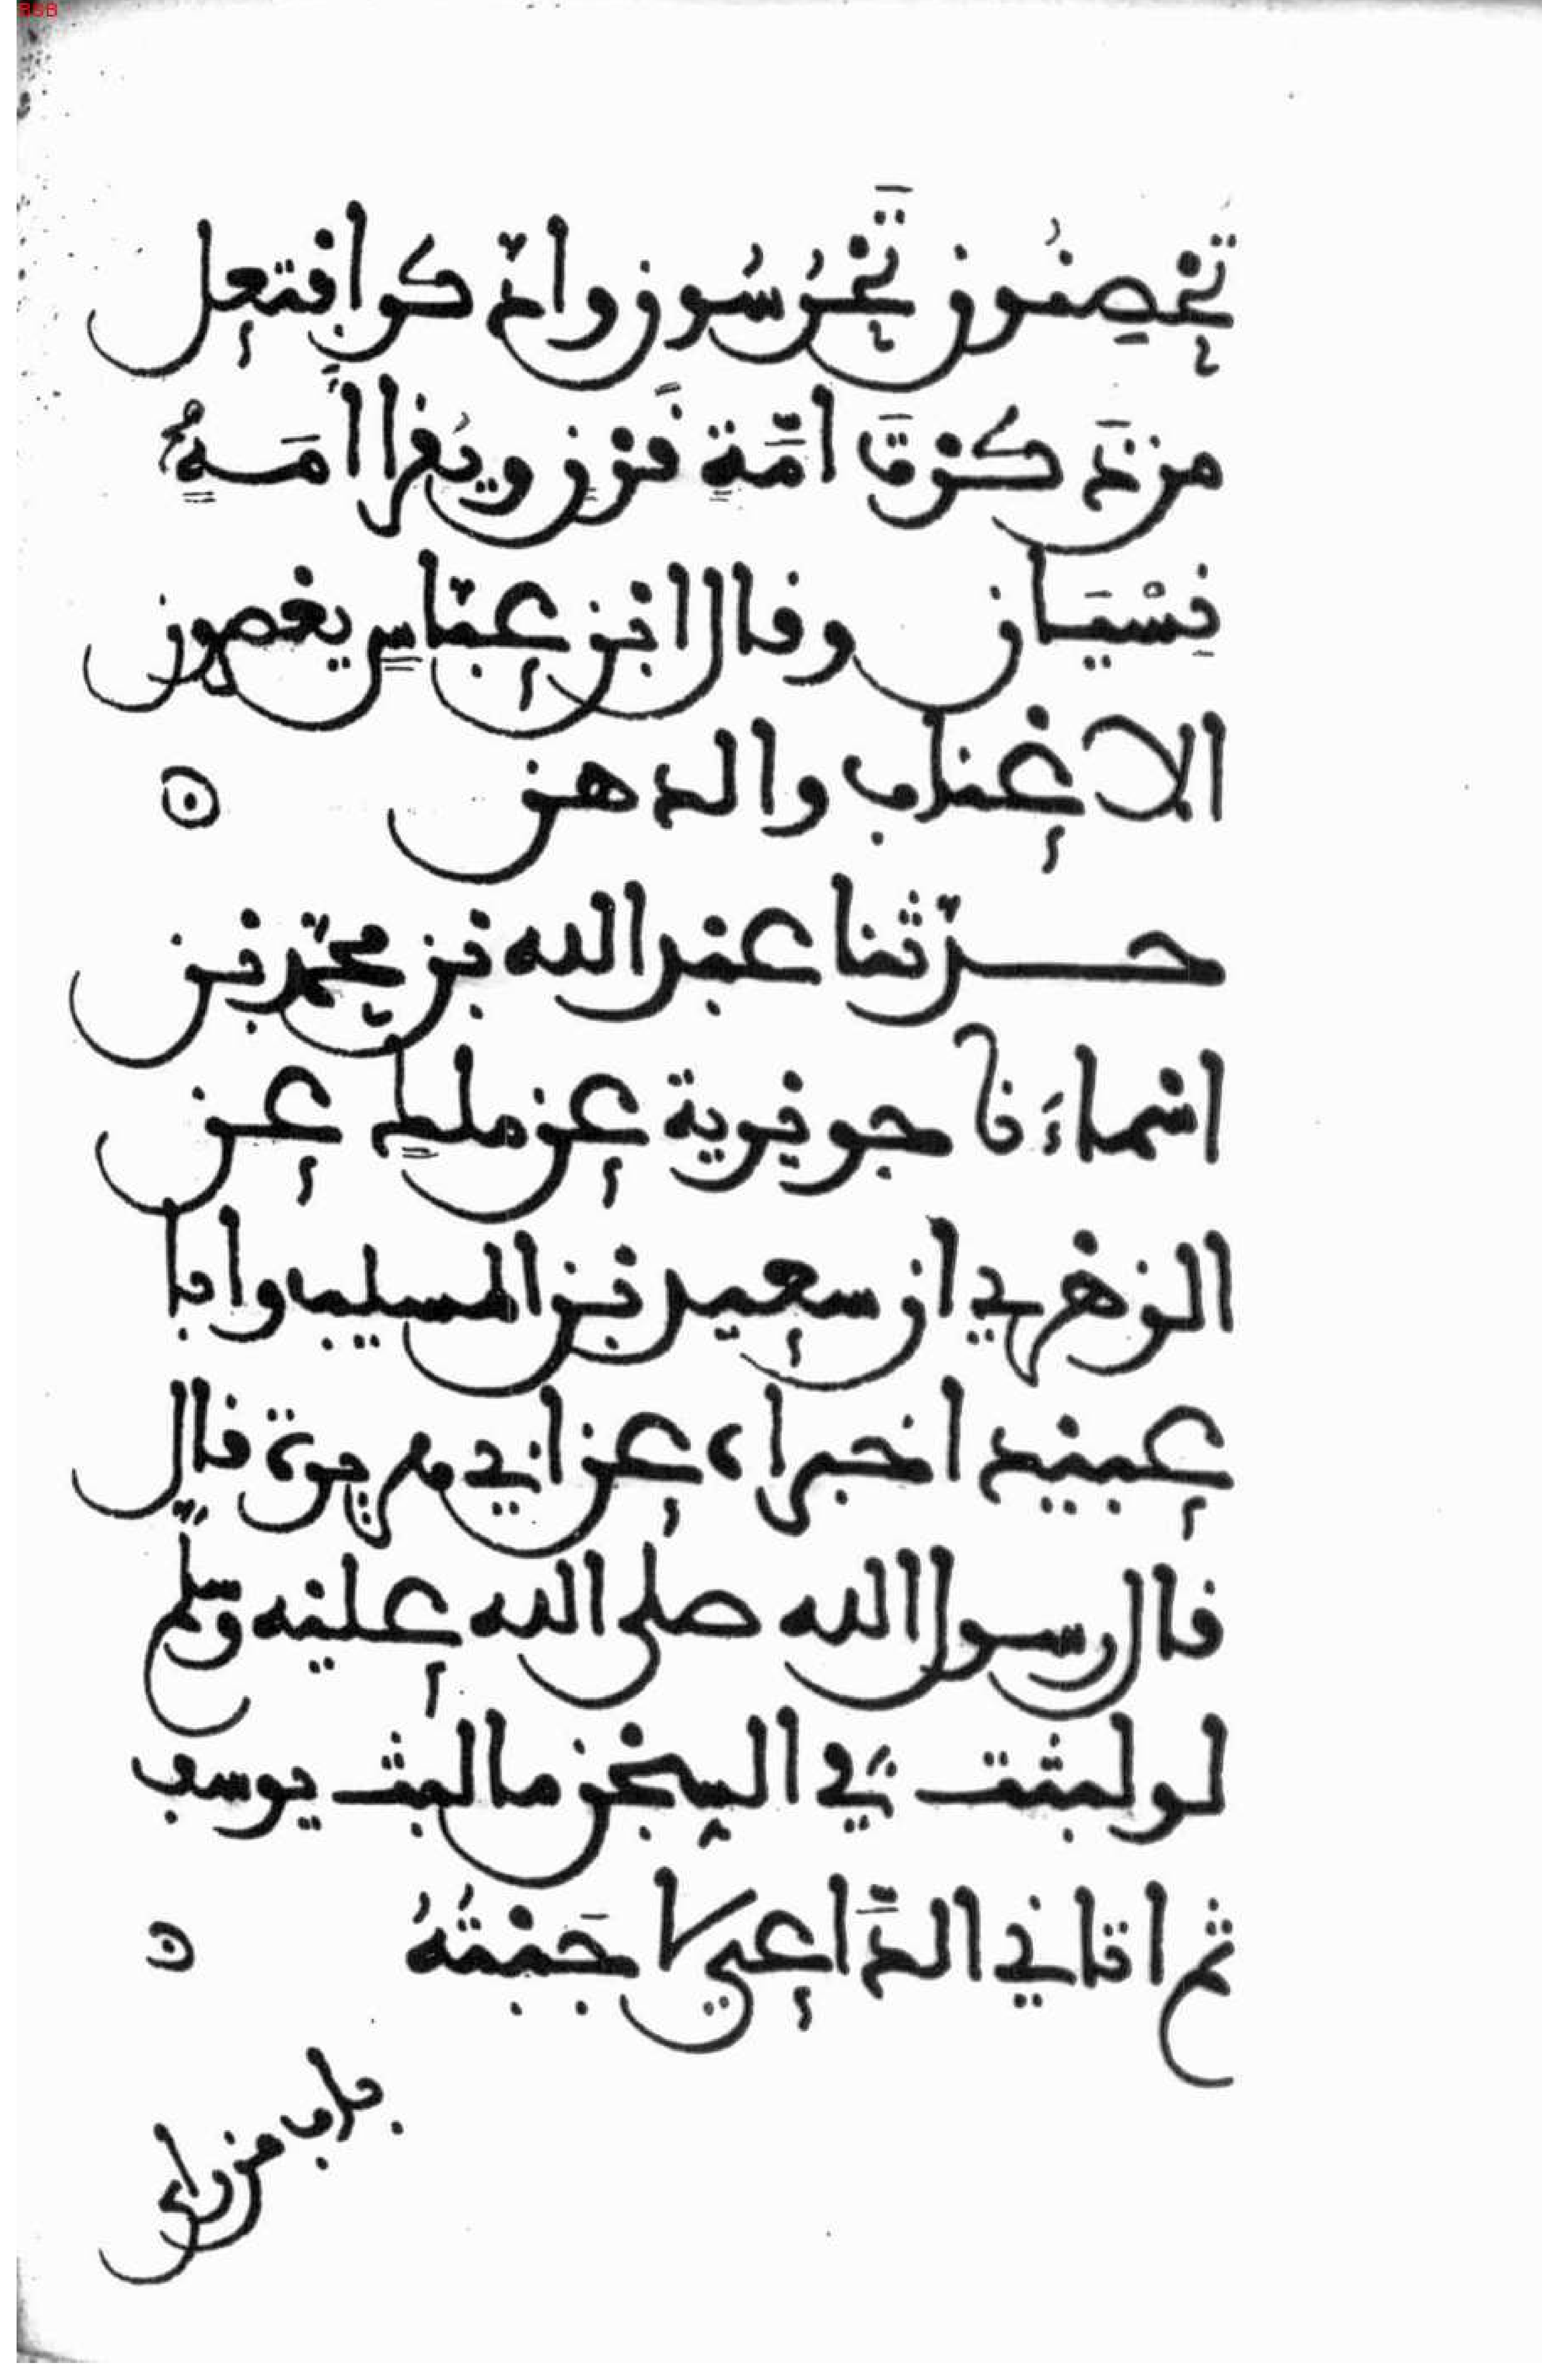 تُحْصِنُونَ تَحْرُسُونَ وادّكر افتعل
من ذَكَرتَ امّةٍ قَرنٍ ويُقرا اَمَهٍ
نِسْيَان وقال ابن عبّاسٍ يعصرون
الاعناب والدهن
حدّثنا عبد الله بن محمّد بن
اسماءَ نا جويرية عن ملكٍ عن
الزهري ان سعيد بن المسيب وابا
عبيد اخبراه عن ابي هريرة قال
قال رسول الله صلى الله عليه وسلم
لو لبثت في السجن ما لبث يوسف
ثم اتاني الدَّاعي لاجَبْتُهُ
باب من راى